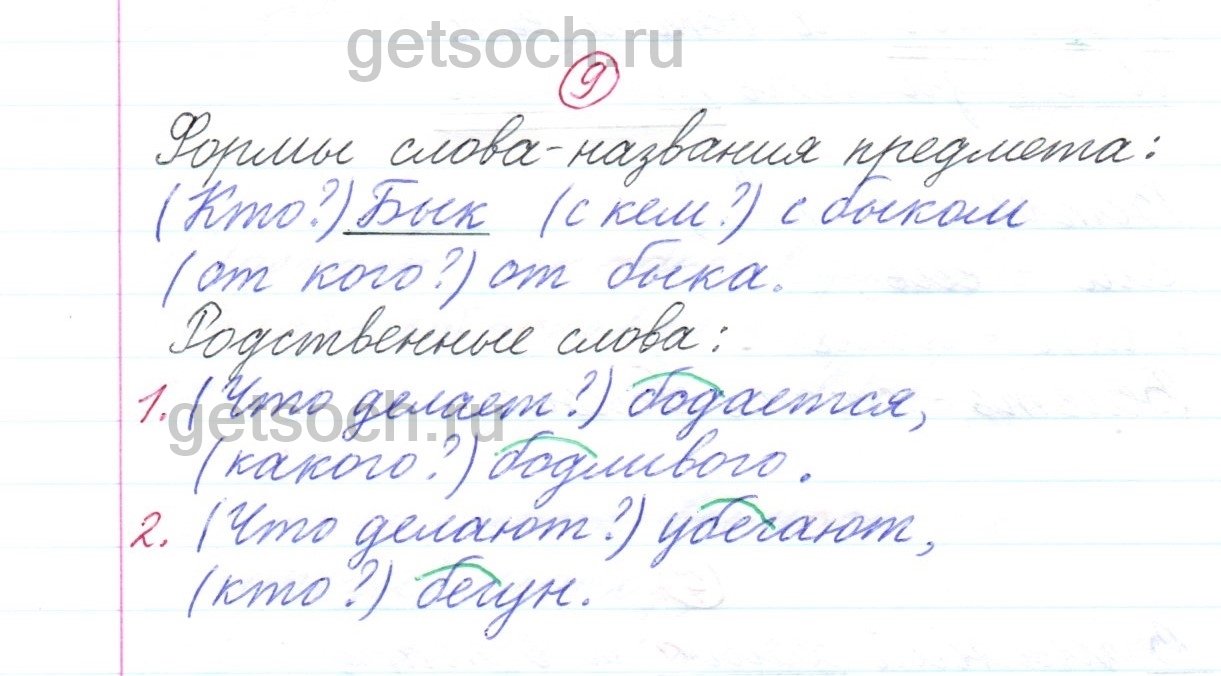 getsoch.ru
9
Формы слова-названия предмета:
(Кто?) Бык (с кем?) с быком
(от кого?) от быка.
Родственные слова:
1. (Что делает?) бодается,
getsoch.ru
(какого?) бодливого.
2. (Что делают?) убегают,
(кто?) бегун.